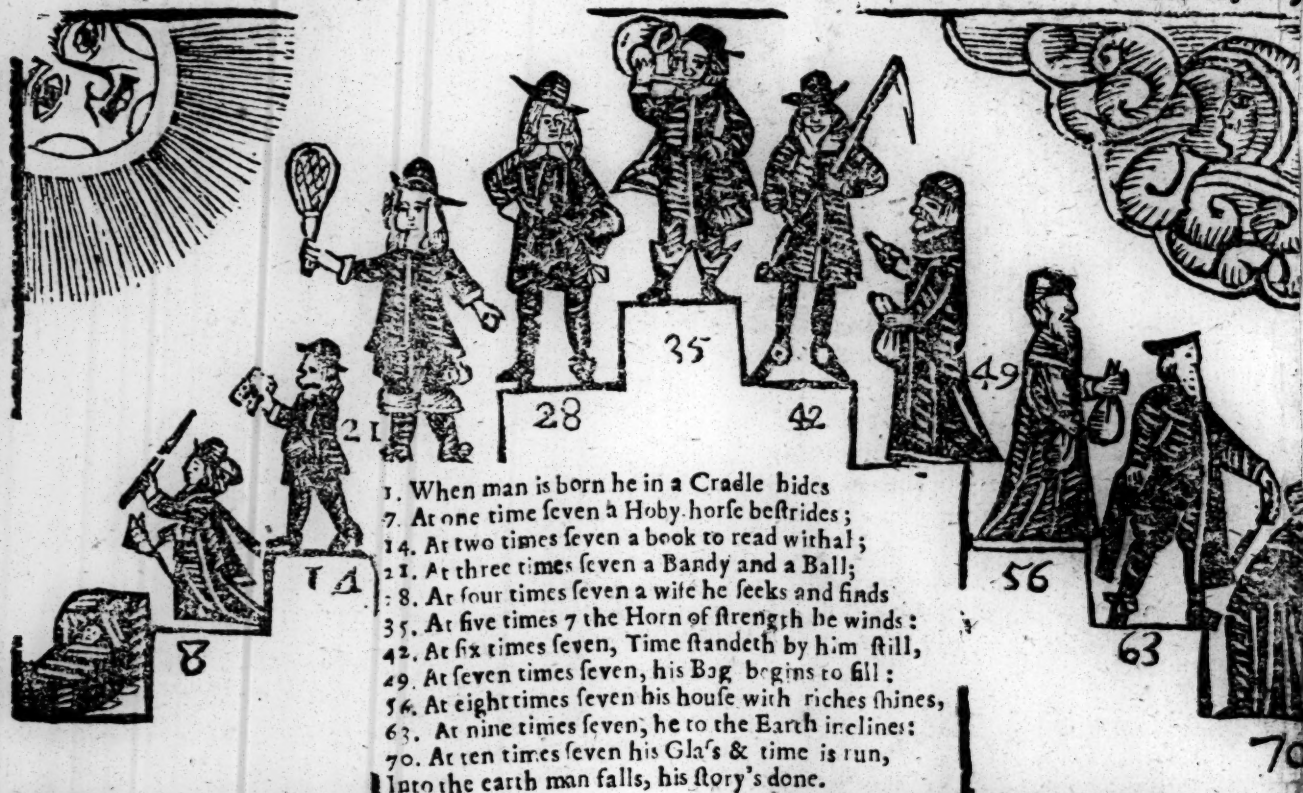 35
21
28
42
49
14
8
56
63
70
1. When man is born he in a Cradle hides
7. At one time ſeven a Hoby-horſe beſtrides;
14. At two times ſeven a book to read withal;
21. At three times ſeven a Bandy and a Ball;
:8. At four times ſeven a wife he ſeeks and finds
35. At five times 7 the Horn of ſtrength he winds:
42. At ſix times ſeven, Time ſtandeth by him ſtill,
49. At ſeven times ſeven, his Bag begins to fill:
56. At eight times ſeven his houſe with riches ſhines,
63. At nine times ſeven, he to the Earth inclines:
70. At ten times ſeven his Glaſs & time is run,
Into the earth man falls, his ſtory's done.